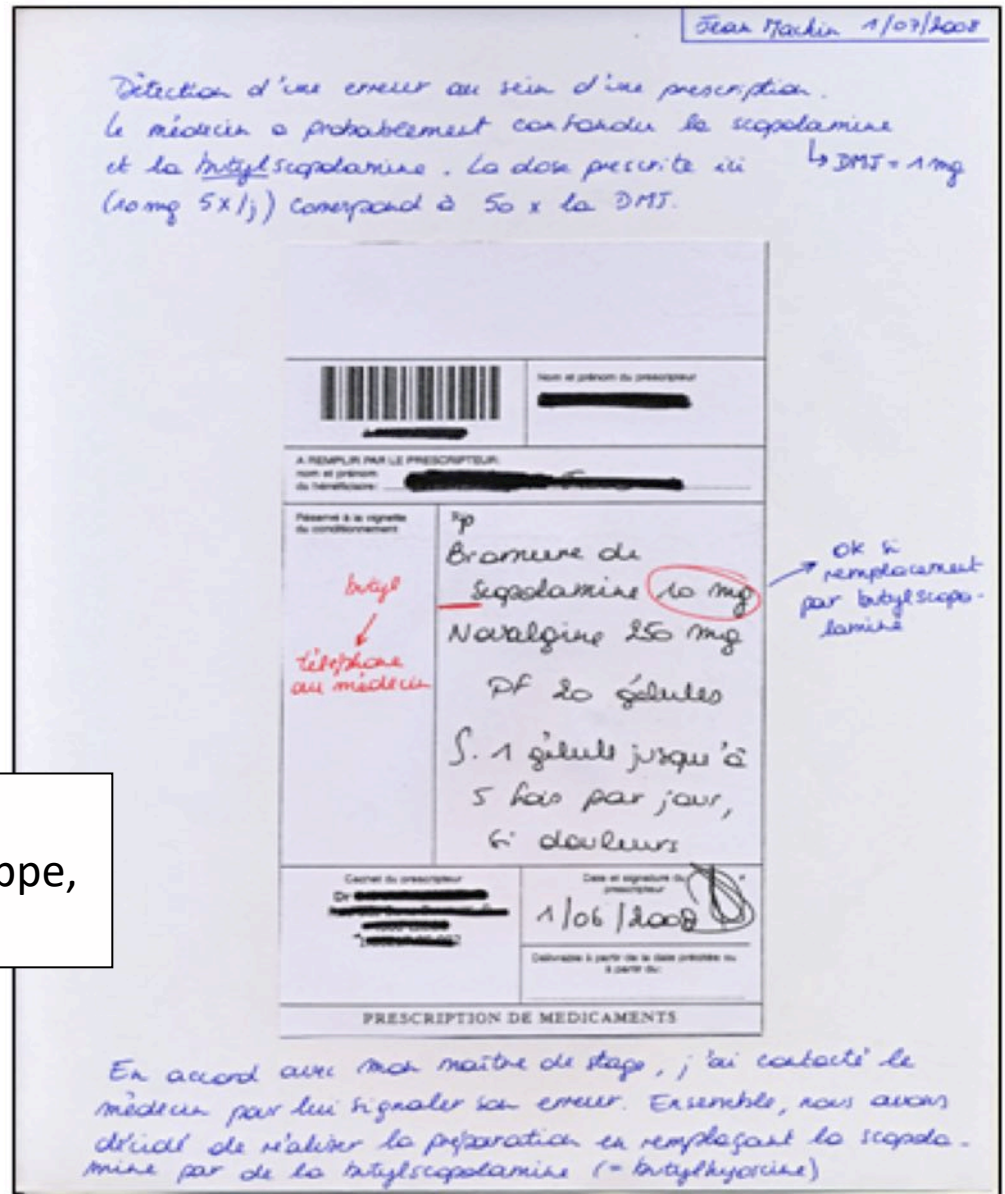 Jean Machin 1/07/2008
Détection d'une erreur au sein d'une prescription.
Le médecin a probablement confondu la scopolamine
et la butylscopolamine. La dose prescrite ici
↳ DMJ = 1 mg
(10 mg 5x/j) correspond à 50 x la DMJ.
Nom et prénom du prescripteur
A REMPLIR PAR LE PRESCRIPTEUR:
nom et prénom
du bénéficiaire:
Réservé à la vignette
du conditionnement
R/p
Bromure de
Scopolamine 10 mg
Novalgine 250 mg
Pf 20 gélules
S. 1 gélule jusqu'à
5 fois par jour,
si douleurs
butyl
téléphone
au médecin
ok si
remplacement
par butylscopo-
lamine
ppe,
Cachet du prescripteur
Dr
Date et signature du
prescripteur
1/06/2008
Délivrable à partir de la date précitée ou
à partir du:
PRESCRIPTION DE MEDICAMENTS
En accord avec mon maître de stage, j'ai contacté le
médecin pour lui signaler son erreur. Ensemble, nous avons
décidé de réaliser la préparation en remplaçant la scopola-
mine par de la butylscopolamine (= butylhyoscine)